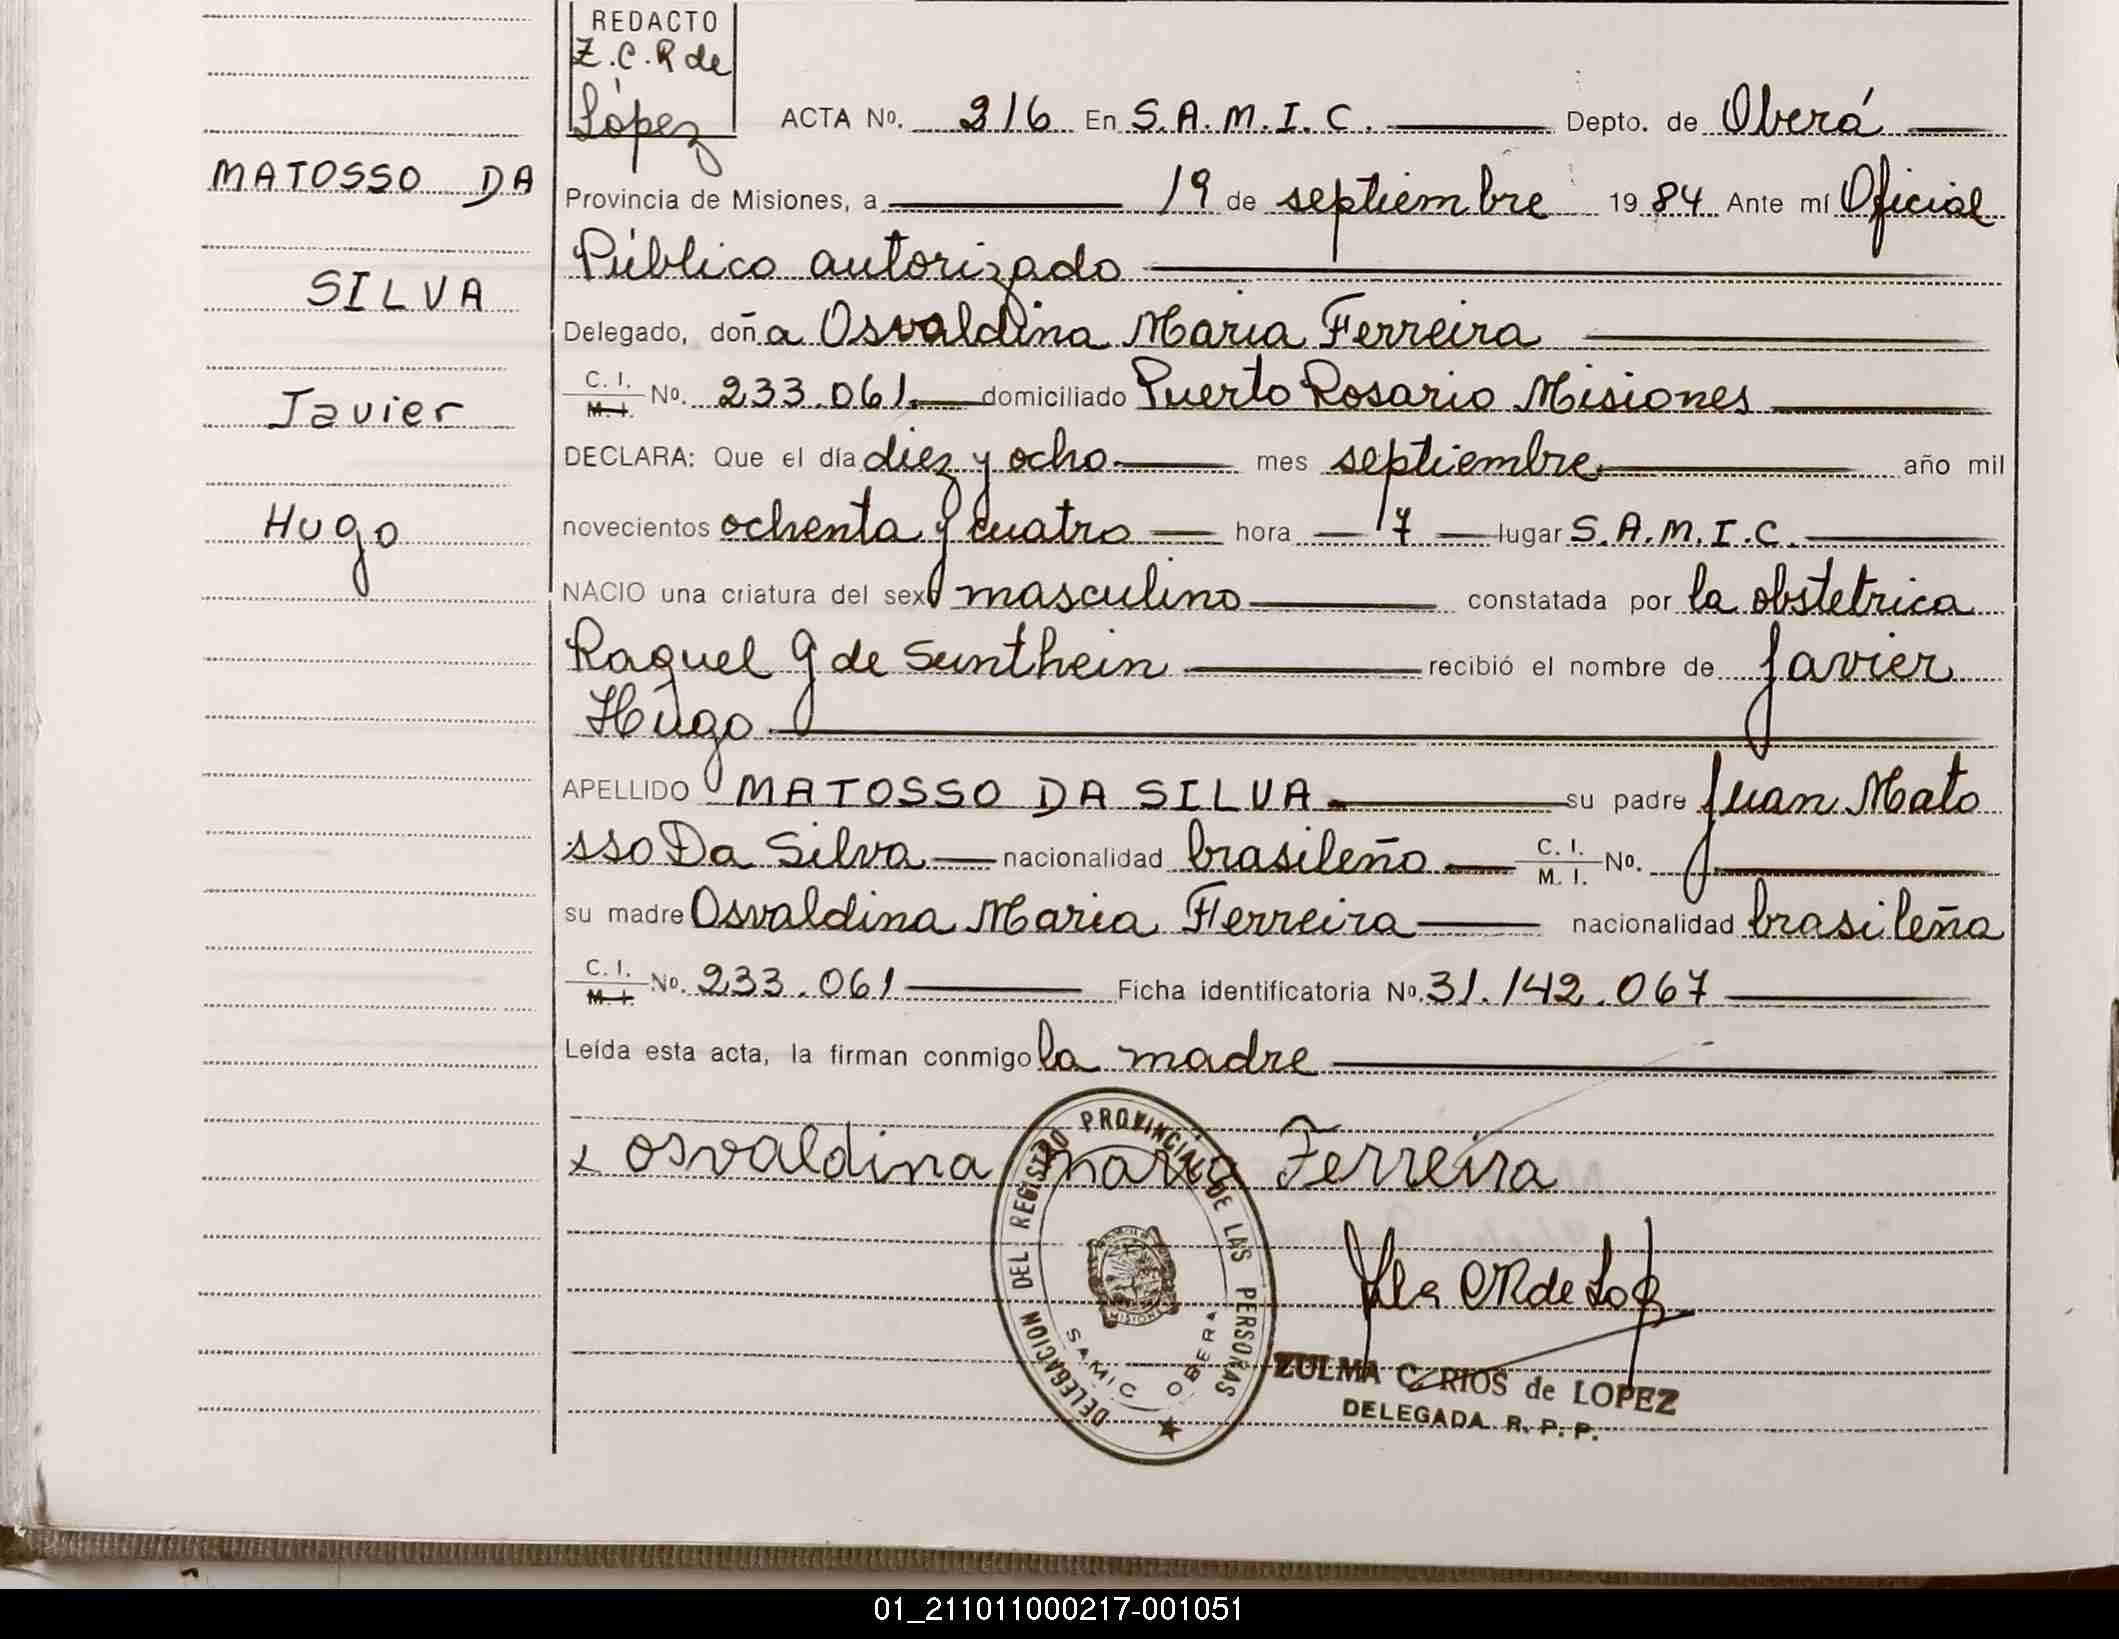 REDACTO
Z. C. R de
López
ACTA No. 316 En S. A. M. I. C. Depto. de Oberá
MATOSSO DA
Provincia de Misiones, a 19 de septiembre 1984 Ante mí Oficial
Público autorizado
SILVA
Delegado, doña Osvaldina Maria Ferreira
C. I. M. I. No. 233.061 domiciliado Puerto Rosario Misiones
Javier
DECLARA: Que el día diez y ocho mes septiembre año mil
Hugo
novecientos ochenta y cuatro hora 17 lugar S. A. M. I. C.
NACIO una criatura del sexo masculino constatada por la obstetrica
Raquel G de recibió el nombre de Javier
Hugo
APELLIDO MATOSSO DA SILVA su padre Juan Mato
sso Da Silva nacionalidad brasileño C. I. M. I. No.
su madre Osvaldina Maria Ferreira nacionalidad brasileña
C. I. M. I. No. 233.061 Ficha identificatoria No. 31.142.067
Leída esta acta, la firman conmigo la madre
x osvaldina maria Ferreira
DELEGACION DEL REGISTRO PROVINCIAL DE LAS PERSONAS
MISIONES
SAMIC OBERA
ZULMA C. RIOS de LOPEZ
DELEGADA R. P. P.
01_211011000217-001051